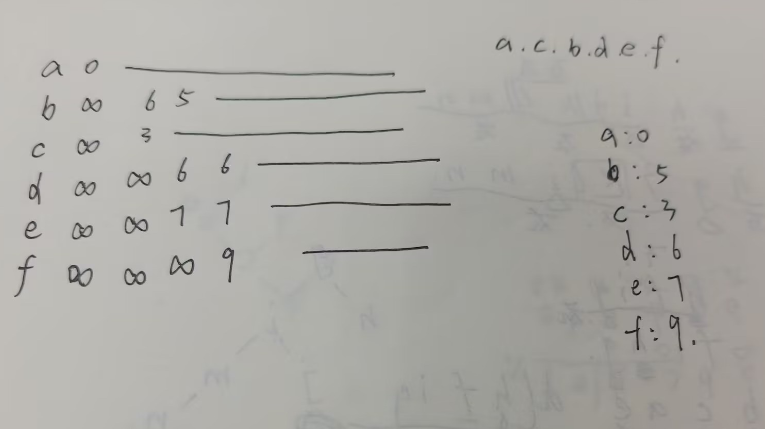 a 0
b ∞ 6 5
c ∞ 3
d ∞ ∞ 6 6
e ∞ ∞ 7 7
f ∞ ∞ ∞ 9
a.c.b.d e.f.
a:0
b:5
c:3
d:6
e:7
f:9.